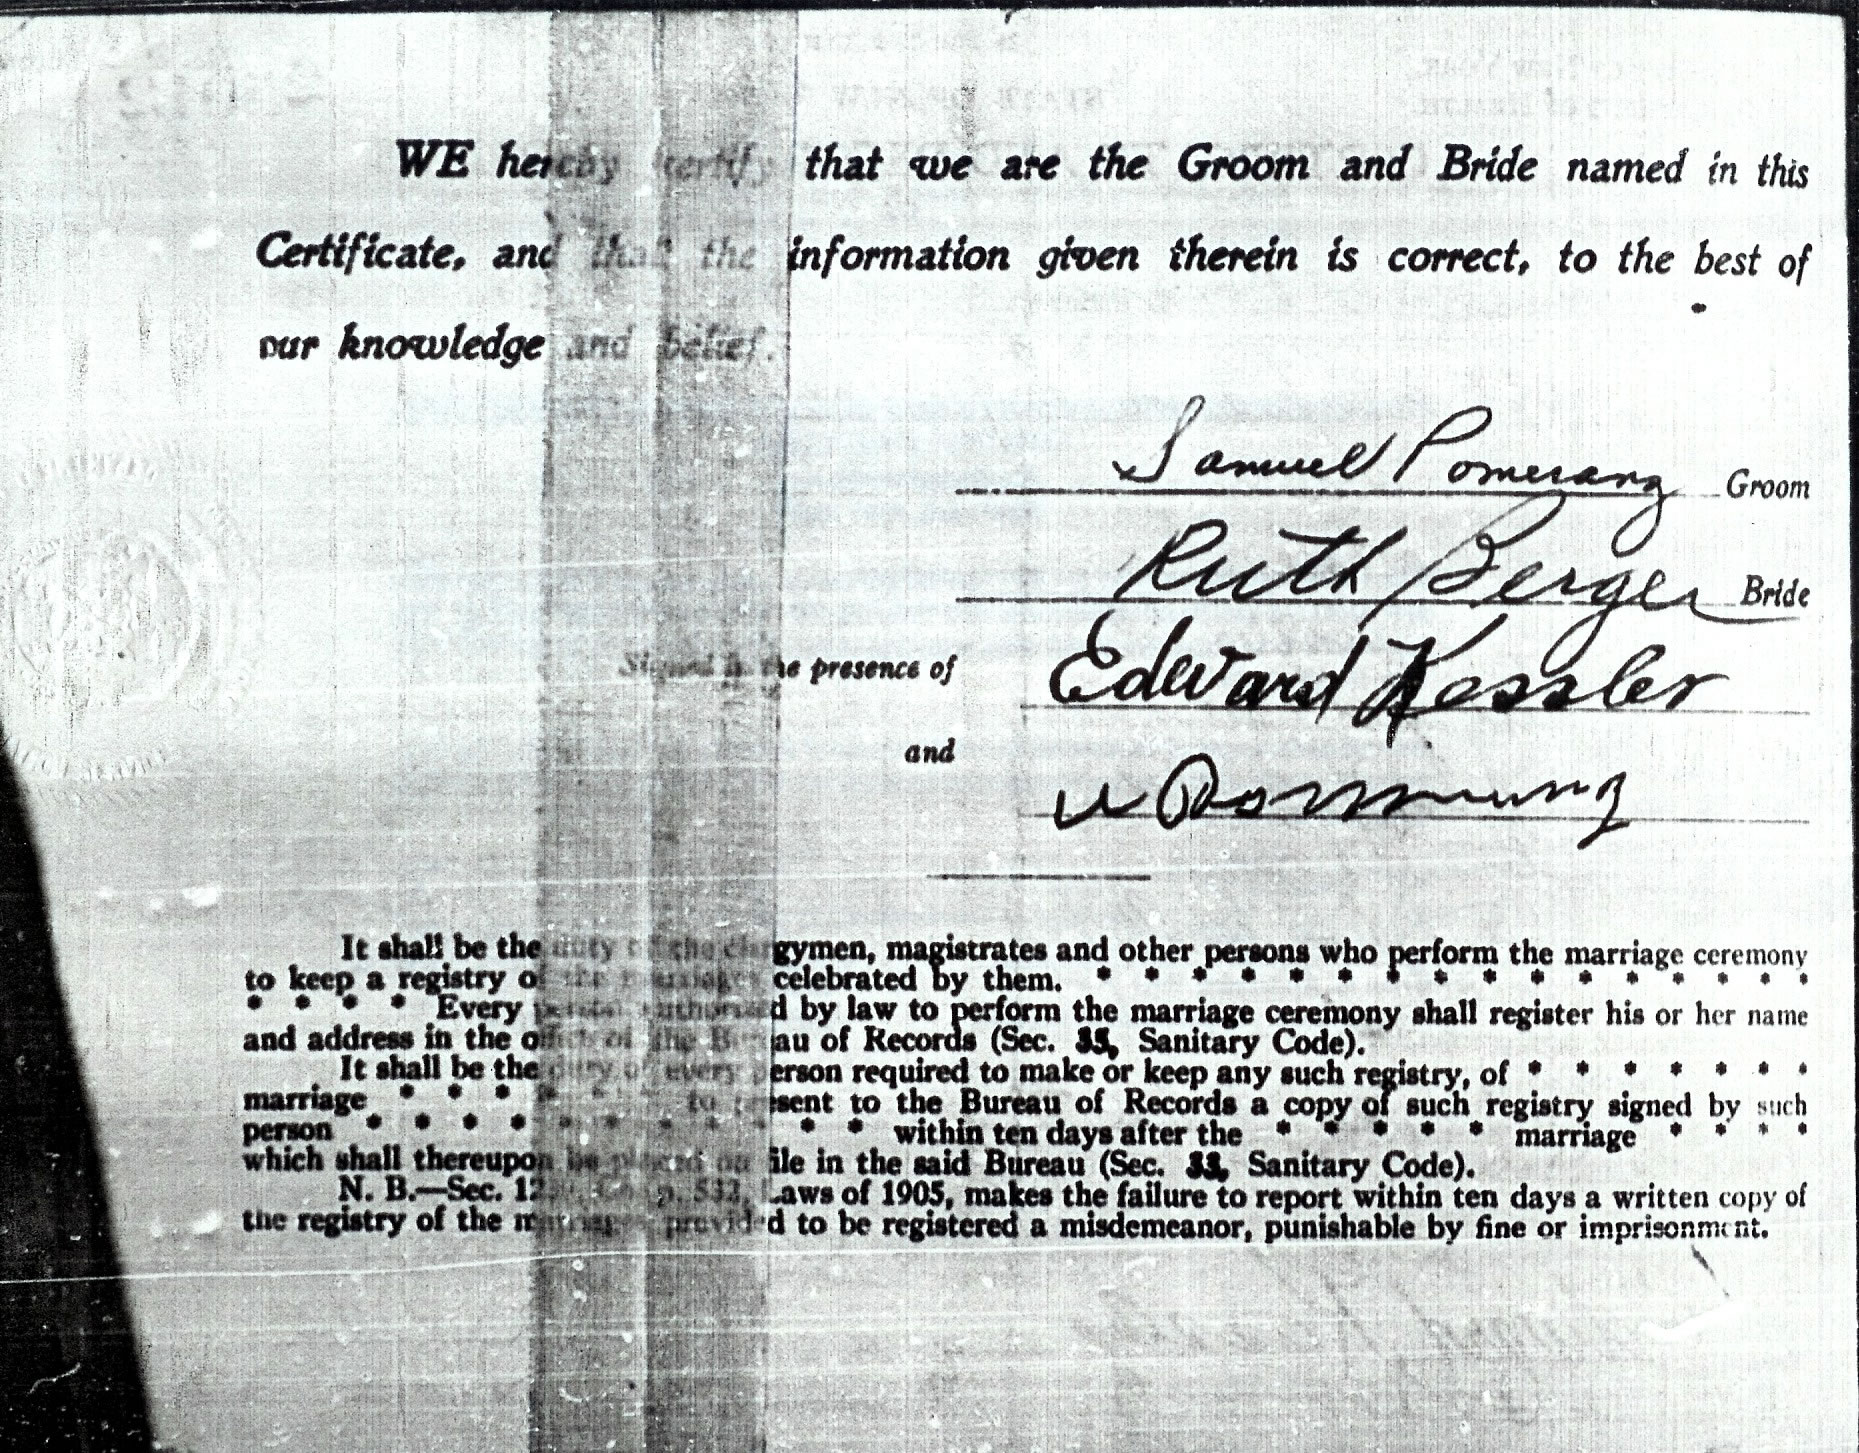 WE hereby certify that we are the Groom and Bride named in this
Certificate, and that the information given therein is correct, to the best of
our knowledge and belief.
Samuel Pomeranz Groom
Ruth Berger Bride
Signed in the presence of Edward Kessler
and
It shall be the duty of the clergymen, magistrates and other persons who perform the marriage ceremony
to keep a registry of the marriages celebrated by them. * * * * * * * * * * * * * * *
* * * * Every person authorized by law to perform the marriage ceremony shall register his or her name
and address in the office of the Bureau of Records (Sec. 33, Sanitary Code).
It shall be the duty of every person required to make or keep any such registry, of * * * * * * *
marriage * * * * * * to present to the Bureau of Records a copy of such registry signed by such
person * * * * * * * * * * * within ten days after the * * * * * marriage * * * *
which shall thereupon be placed on file in the said Bureau (Sec. 33, Sanitary Code).
N. B.—Sec. Chap. 532, Laws of 1905, makes the failure to report within ten days a written copy of
the registry of the marriages provided to be registered a misdemeanor, punishable by fine or imprisonment.